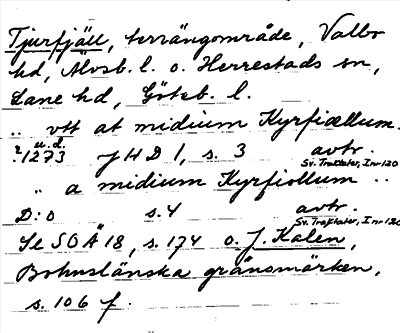 Tjurfjäll, terrängområde, Valbo
hd, Älvsb. l. o. Herrestads sn,
Lane hd, Göteb. l.
.. vtt at midium Kyrfiællum.
? u.d.
:1273 JHD 1, s. 3 avtr.
Sv. Traktater, I nr 120
" a midium Kyrfiollum ..
D:o s. 4 avtr.
Sv. Traktater, I nr 120
Se SOÄ 18, s. 174 o. J. Kalén,
Bohuslänska gränsmärken,
s. 106 f.